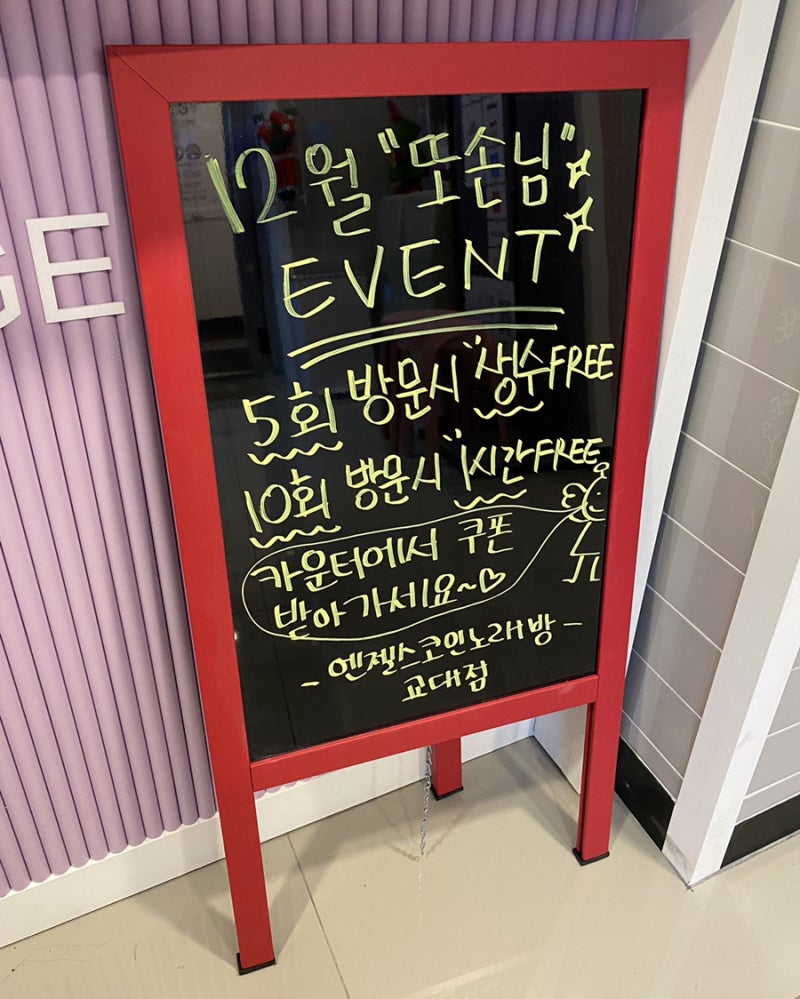 12월 "또손님"
EVENT
5회 방문시 "생수FREE
10회 방문시 "1시간FREE
카운터에서 쿠폰
받아가세요~♡
- 엔젤스코인노래방 -
교대점
GE